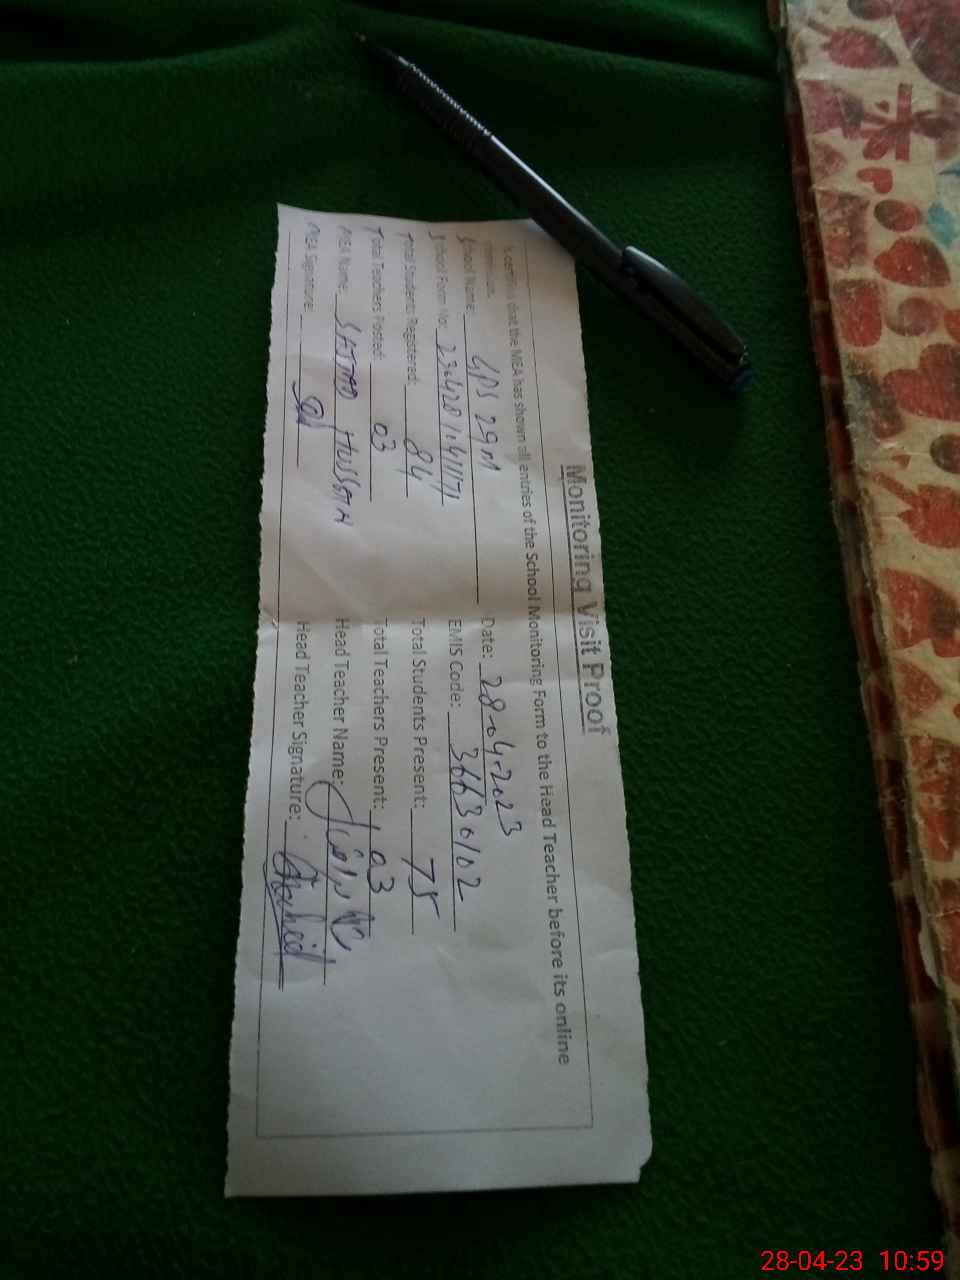 Monitoring Visit Proof
is certified that the MEA has shown all entries of the School Monitoring Form to the Head Teacher before its online
School Name: GPS 29M Date: 28-04-2023
School Form No: EMIS Code: 36630102
Total Students Registered: 84 Total Students Present: 75
Total Teachers Posted: 03 Total Teachers Present: 03
MEA Name: SAJJAD HUSSAIN Head Teacher Name:
MEA Signature: Head Teacher Signature:
28-04-23 10:59